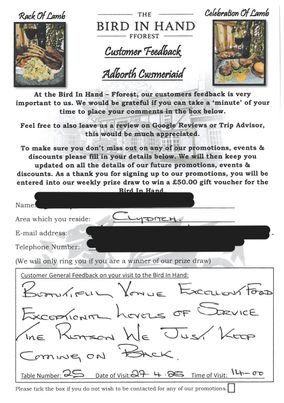 Rack Of Lamb
Celebration Of Lamb
THE
BIRD IN HAND
FFOREST
Customer Feedback
Adborth Cwsmeriaid
At the Bird In Hand – Fforest, our customers feedback is very
important to us. We would be grateful if you can take a 'minute' of your
time to place your comments in the box below.
Feel free to also leave us a review on Google Reviews or Trip Advisor,
this would be much appreciated.
To make sure you don't miss out on any of our promotions, events &
discounts please fill in your details below. We will then keep you
updated on all the details of our future promotions, events &
discounts. As a thank you for signing up to our promotions, you will be
entered into our weekly prize draw to win a £50.00 gift voucher for the
Bird In Hand.
Name
Area which you reside: CLYDACH
E-mail address:
Telephone Number:
(We will only ring you if you are a winner of our prize draw)
Customer General Feedback on your visit to the Bird In Hand:
BEAUTIFUL VENUE EXCELLENT FOOD
EXCEPTIONAL LEVELS OF SERVICE
THE REASON WE JUST KEEP
COMING ON BACK.
Table Number: 25 Date of Visit: 27 4 25 Time of Visit: 14-00
Please tick the box if you do not wish to be contacted for any of our promotions.